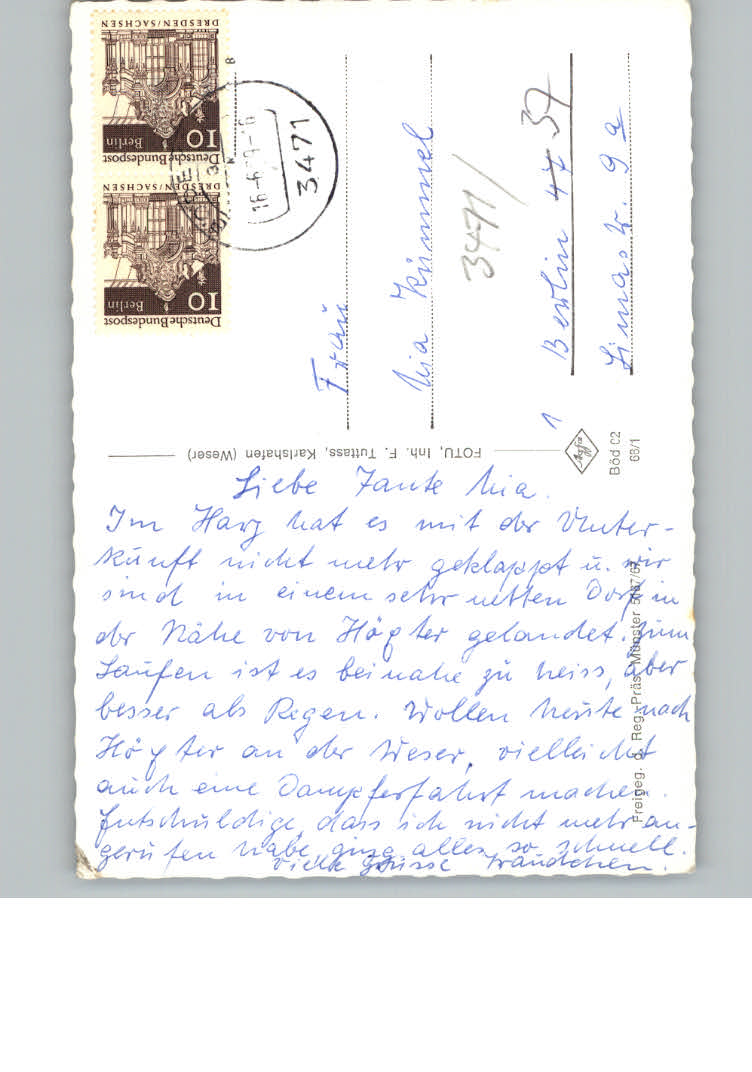 Liebe Tante Mia.
Im Harz hat es mit der Unter-
kunft nicht mehr geklappt u. wir
sind in einem sehr netten Dorf in
der Nähe von Höxter gelandet. Zum
Laufen ist es beinahe zu heiss, aber
besser als Regen. Wollen heute nach
Höxter an der Weser, vielleicht
auch eine Dampferfahrt machen.
Entschuldige, dass ich nicht mehr an-
gerufen habe, ging alles so schnell.
Viele Grüsse Traudchen.
Frau
Mia Kümmel
3471/
1 Berlin 47 37
Limastr. 9a
DRESDEN/SACHSEN
10
Berlin
Deutsche Bundespost
DRESDEN/SACHSEN
10
Berlin
Deutsche Bundespost
3471
16-6.69-16
FOTU, Inh. F. Tuttass, Karlshafen (Weser)
Agfa
Böd 02
68/1
Freigeg. d. Reg.-Präs. Münster 5167/67